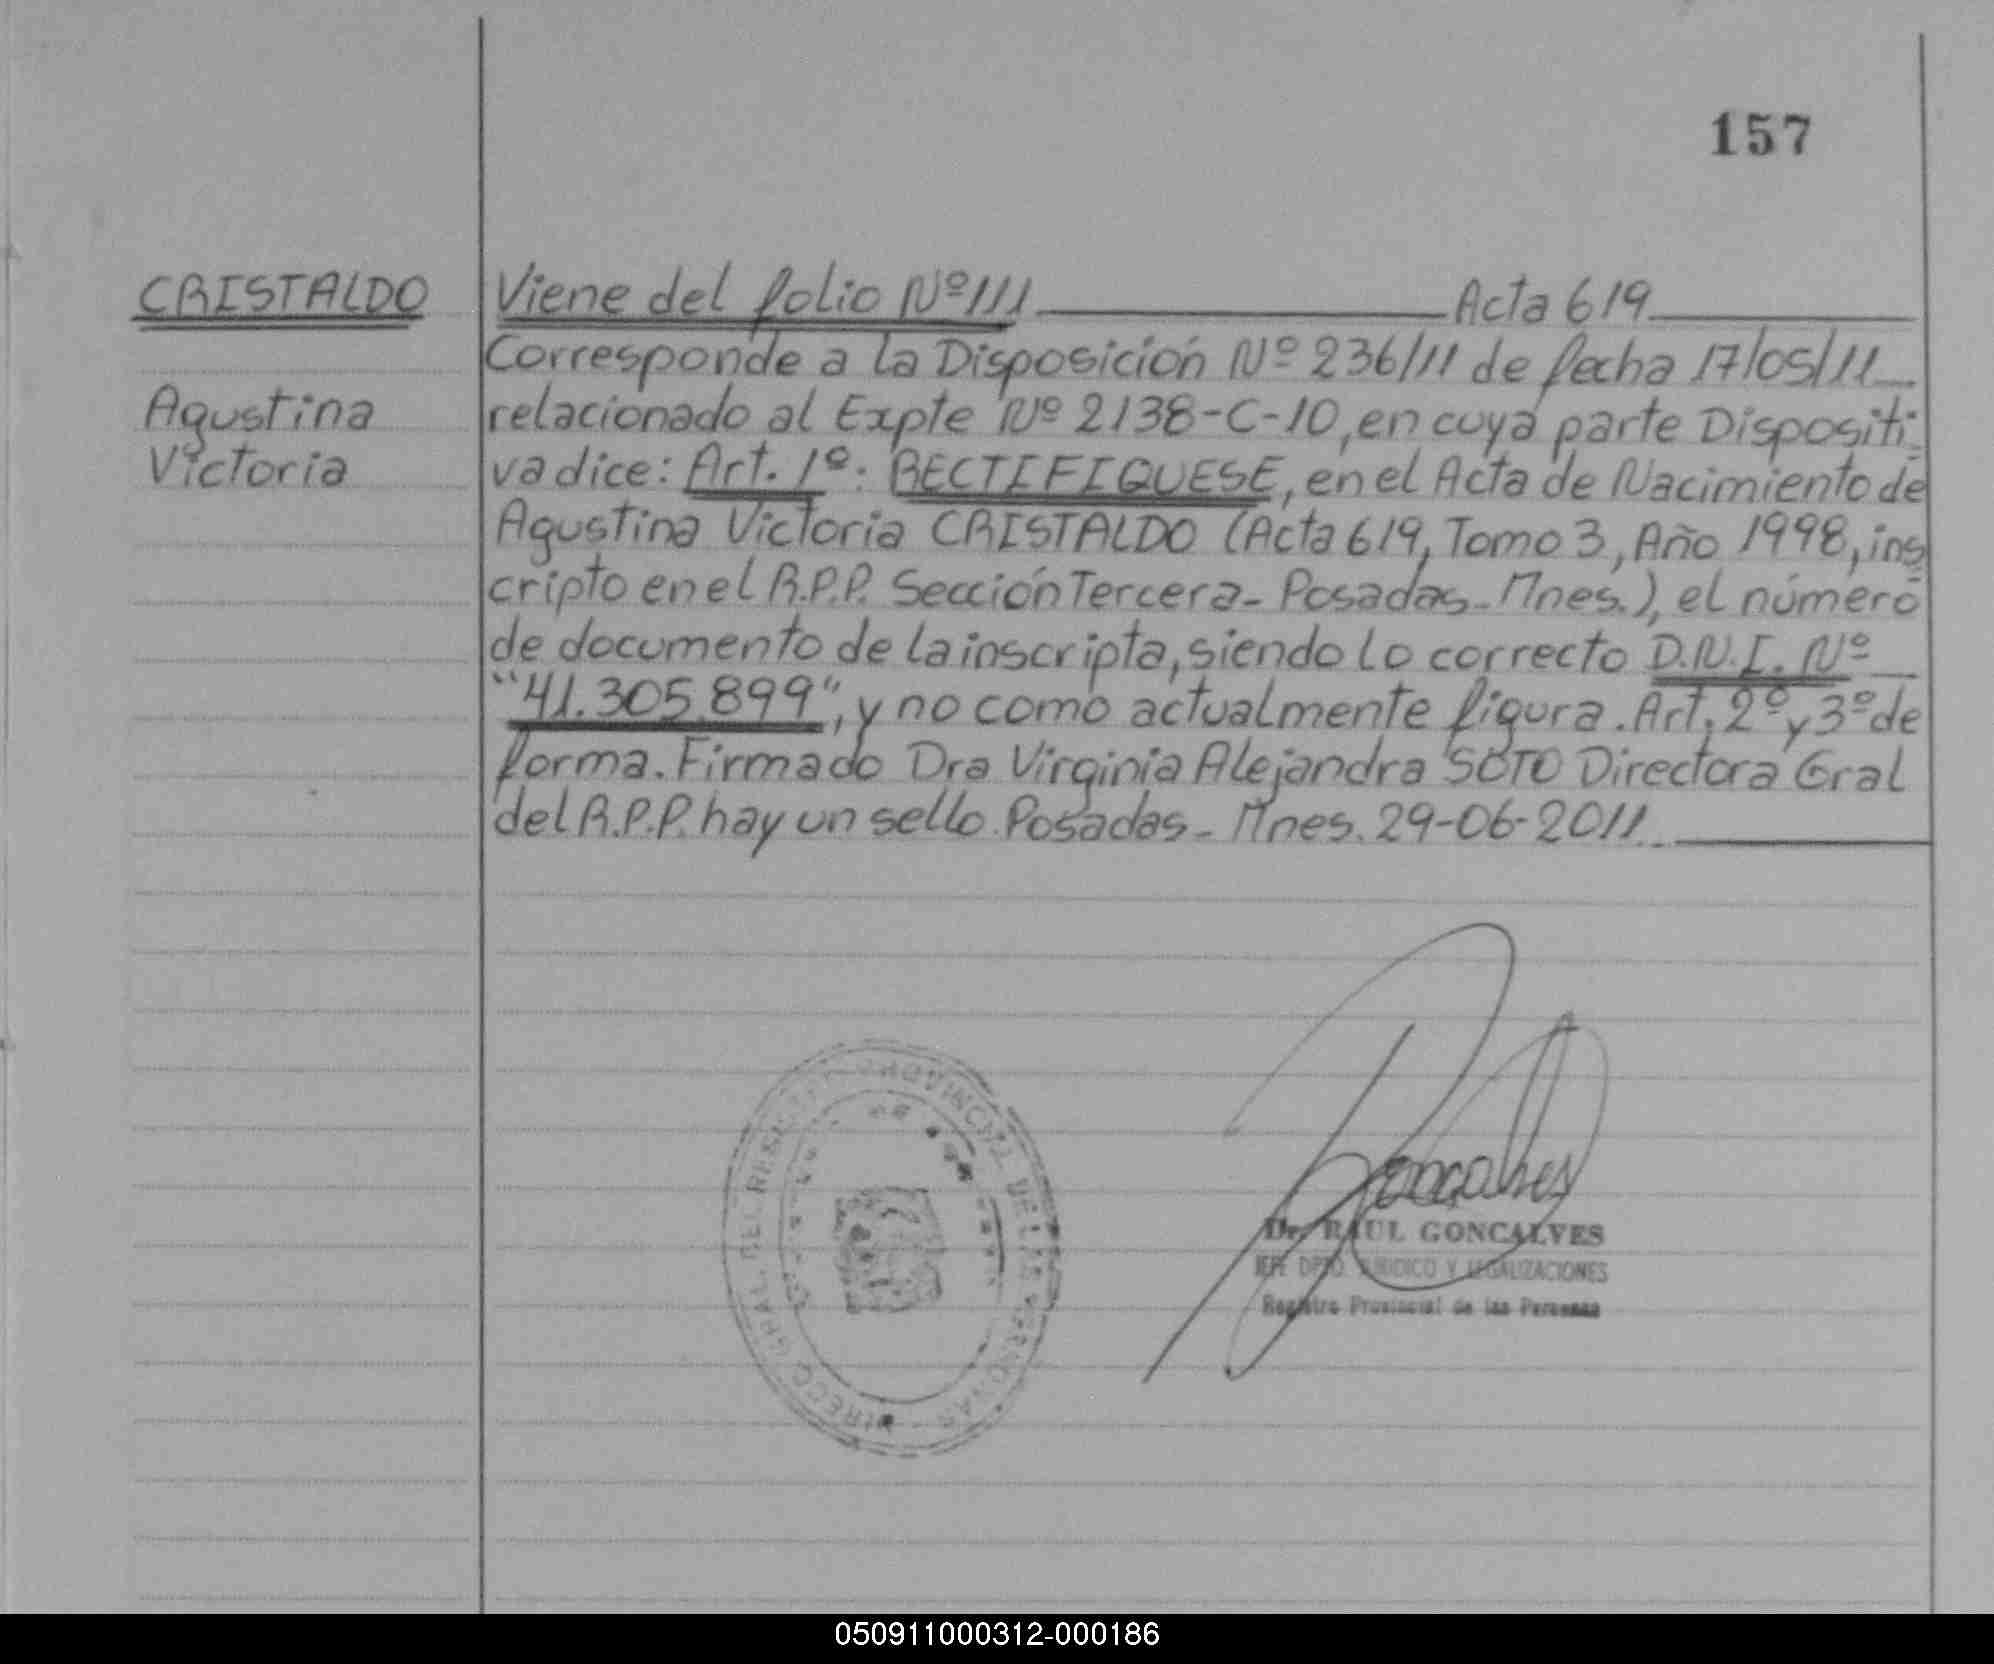 157
CRISTALDO
Agustina
Victoria
Viene del folio Nº 111 Acta 619
Corresponde a la Disposición Nº 236/11 de fecha 17/05/11
relacionado al Expte Nº 2138-C-10, en cuya parte Dispositi-
va dice: Art. 1º: RECTIFIQUESE, en el Acta de Nacimiento de
Agustina Victoria CRISTALDO (Acta 619, Tomo 3, Año 1998, ins
cripto en el R.P.P. Sección Tercera - Posadas - Mnes.), el número
de documento de la inscripta, siendo lo correcto D.N.I. Nº
"41.305.899", y no como actualmente figura. Art. 2º y 3º de
forma. Firmado Dra Virginia Alejandra SOTO Directora Gral
del R.P.P. hay un sello. Posadas - Mnes. 29-06-2011
DIRECC. GRAL. DEL REGISTRO PROVINCIAL DE LAS PERSONAS
Goncalves
Dr. RAUL GONCALVES
JEFE DPTO. JURIDICO Y LEGALIZACIONES
Registro Provincial de las Personas
050911000312-000186